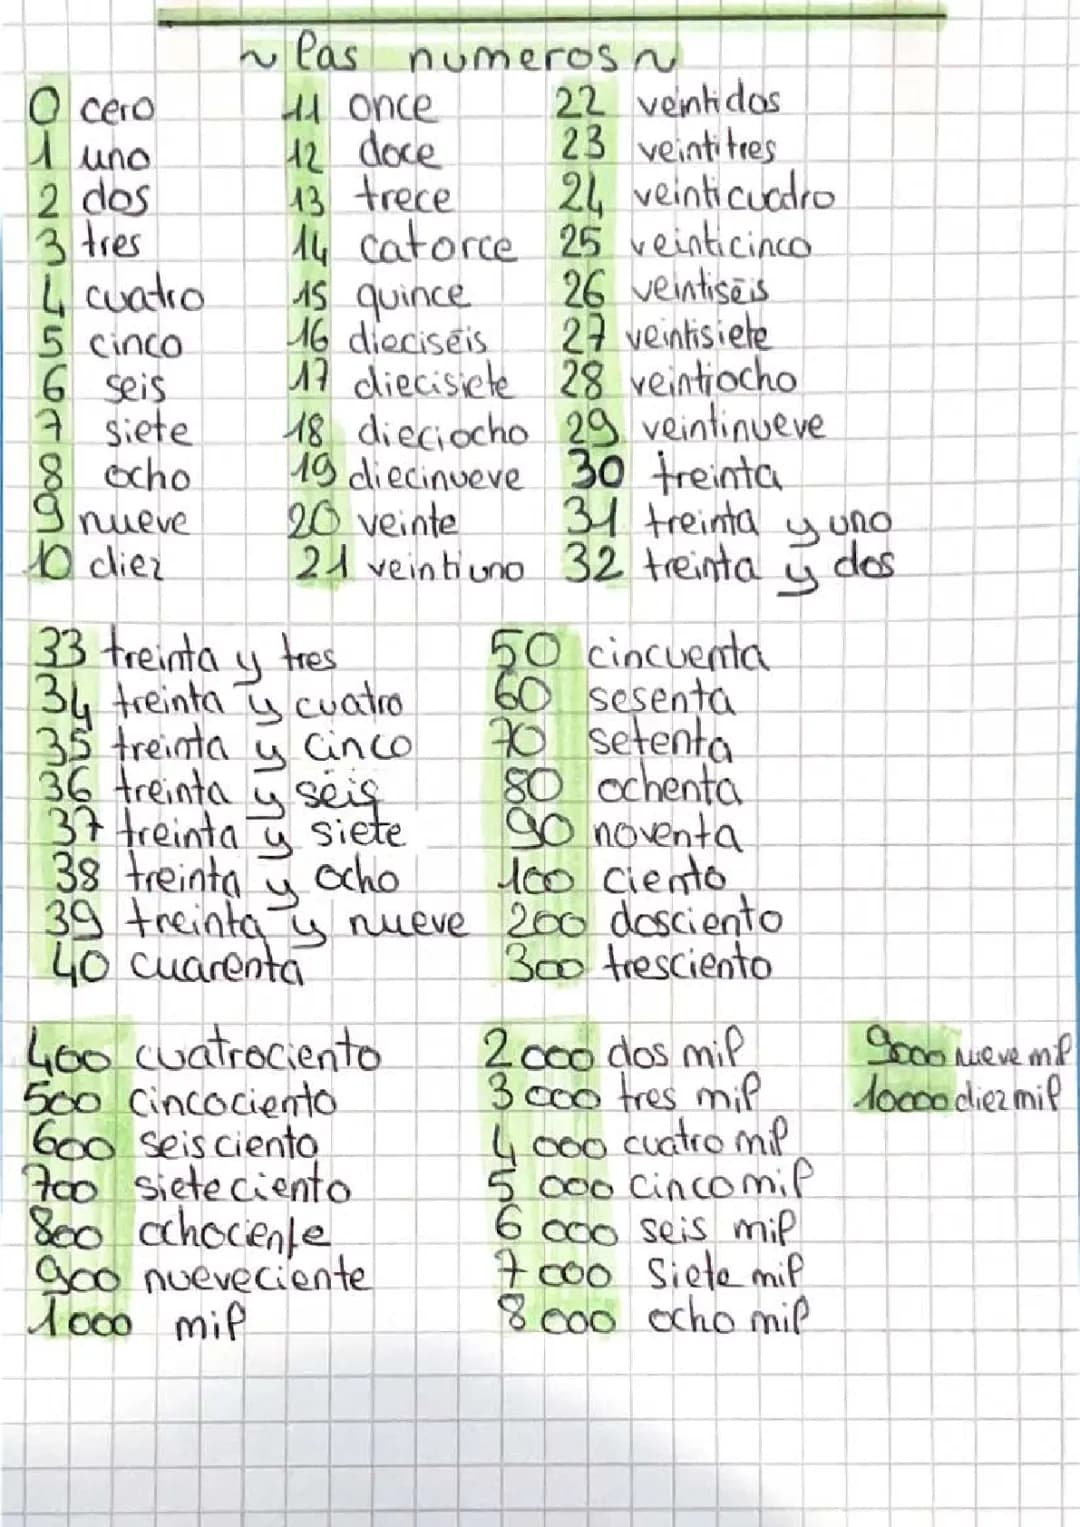 ~ las numeros ~
0 cero
1 uno
2 dos
3 tres
4 cuatro
5 cinco
6 seis
7 siete
8 ocho
9 nueve
10 diez
11 once
12 doce
13 trece
14 catorce
15 quince
16 dieciséis
17 diecisiete
18 dieciocho
19 diecinueve
20 veinte
21 veintiuno
22 veintidos
23 veintitres
24 veinticuadro
25 veinticinco
26 veintiséis
27 veintisiete
28 veintiocho
29 veintinueve
30 treinta
31 treinta y uno
32 treinta y dos
33 treinta y tres
34 treinta y cuatro
35 treinta y cinco
36 treinta y séis
37 treinta y siete
38 treinta y ocho
39 treinta y nueve
40 cuarenta
50 cincuenta
60 sesenta
70 setenta
80 ochenta
90 noventa
100 ciento
200 dosciento
300 tresciento
400 cuatrociento
500 cincociento
600 seisciento
700 sieteciento
800 ochociente
900 nueveciente
1000 mil
2000 dos mil
3000 tres mil
4000 cuatro mil
5000 cinco mil
6000 seis mil
7000 siete mil
8000 ocho mil
9000 nueve mil
10000 diez mil